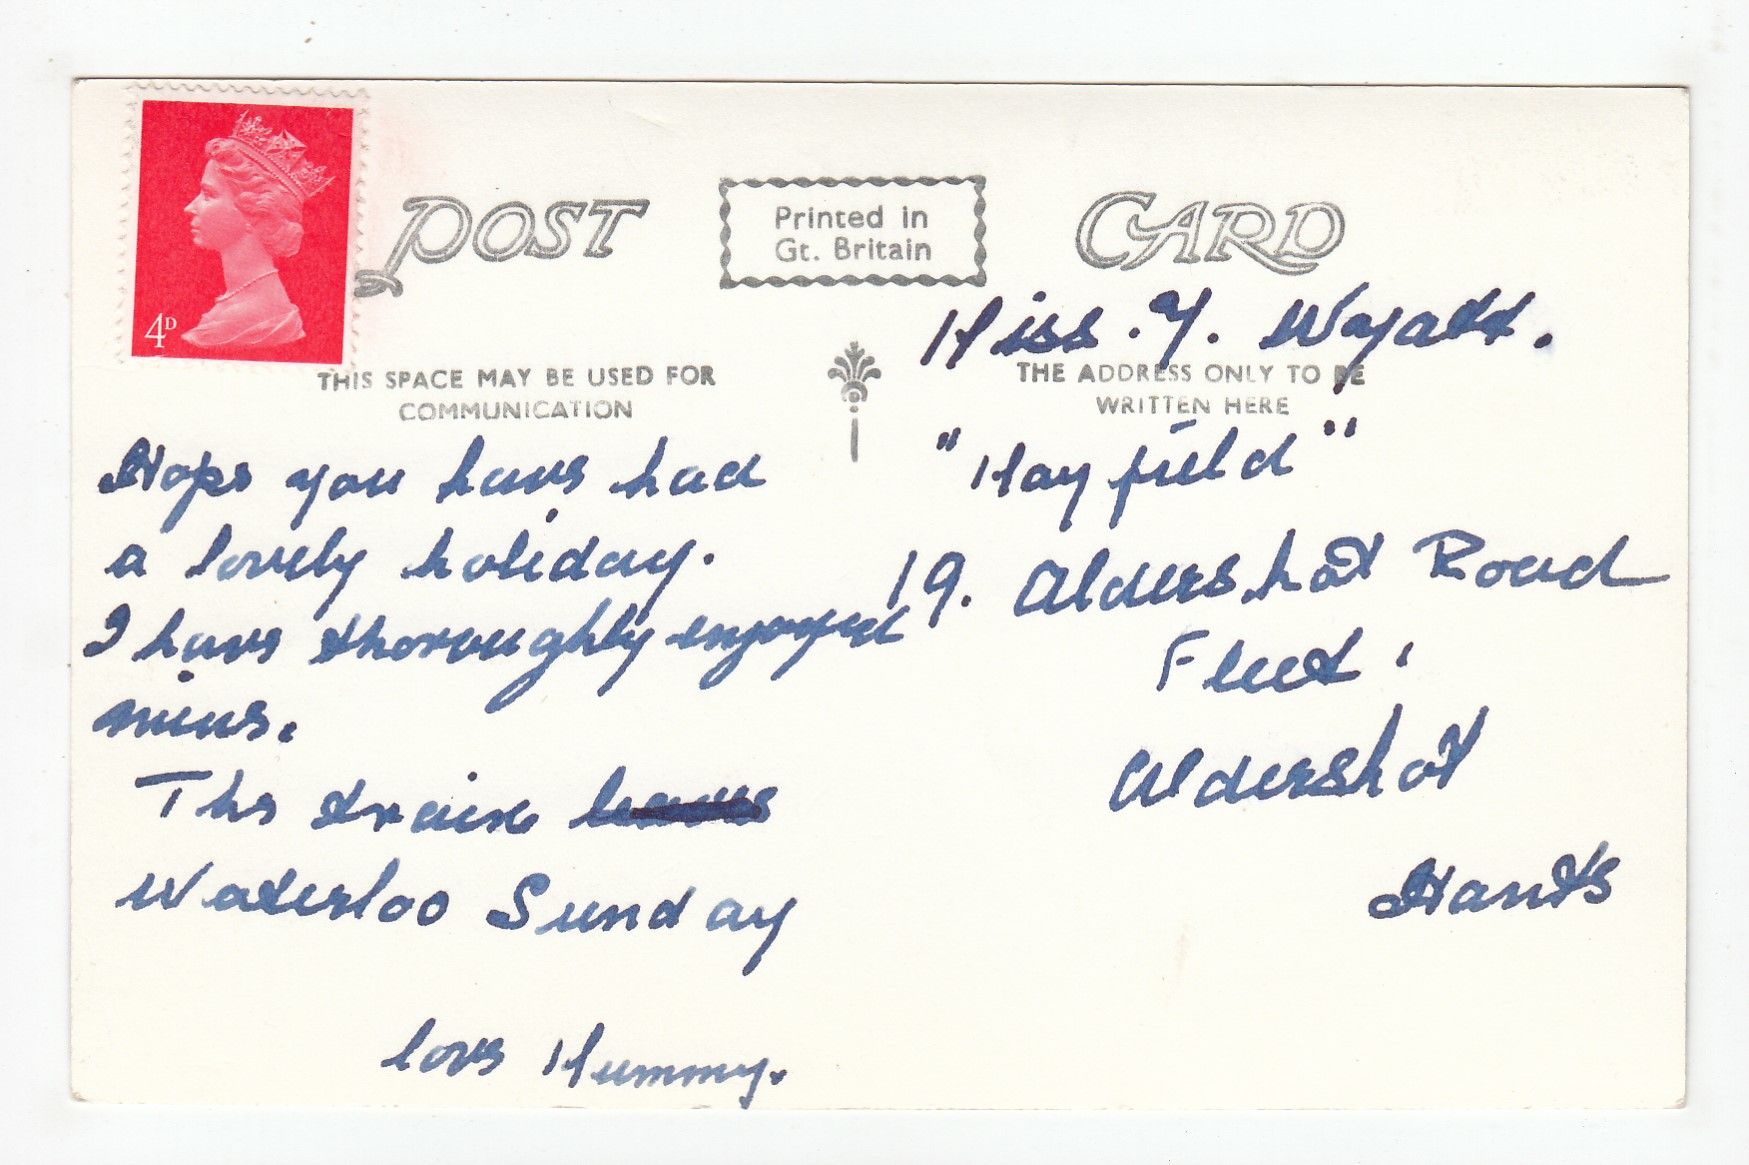 4D
POST
Printed in
Gt. Britain
CARD
THIS SPACE MAY BE USED FOR
COMMUNICATION
THE ADDRESS ONLY TO BE
WRITTEN HERE
Hope you have had
a lovely holiday.
I have thoroughly enjoyed
mine.
The train leaves
Waterloo Sunday
love Mummy.
Miss. Y. Wyatt.
"Hayfield"
19. Aldershot Road
Fleet.
Aldershot
Hants